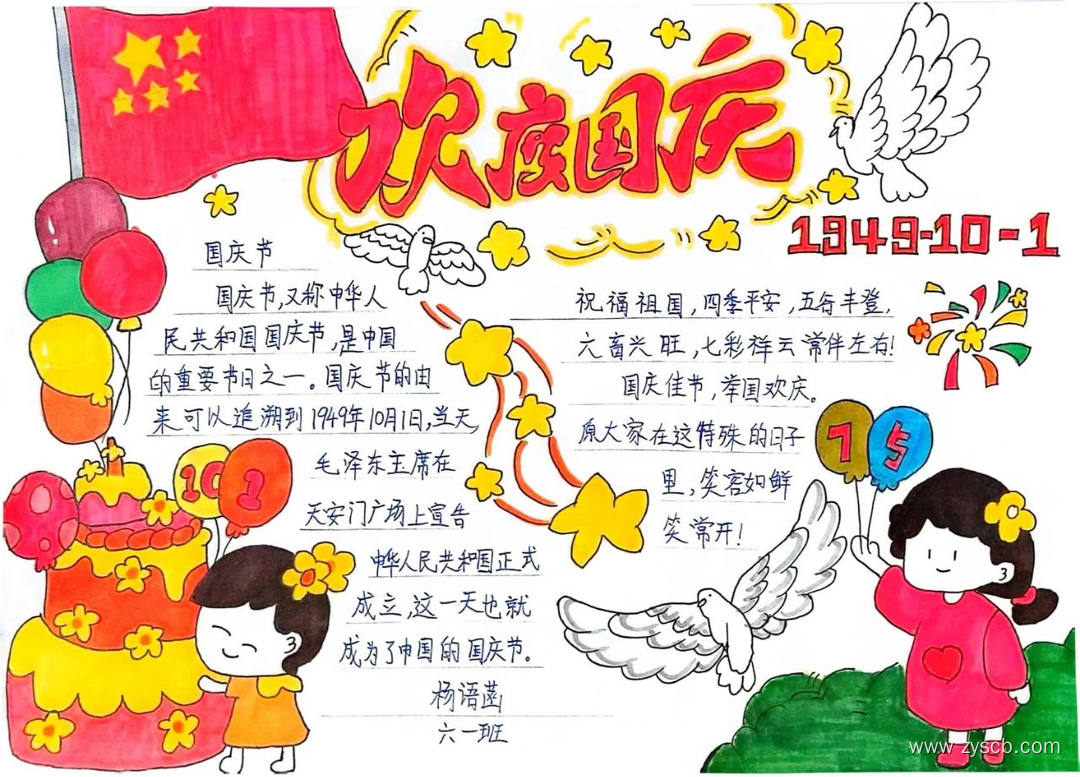 欢度国庆
1949-10-1
国庆节
国庆节,又称中华人
民共和国国庆节,是中国
的重要节日之一。国庆节的由
来可以追溯到1949年10月1日,当天
毛泽东主席在
天安门广场上宣告
中华人民共和国正式
成立,这一天也就
成为了中国的国庆节。
杨语菡
六一班
祝福祖国,四季平安,五谷丰登,
六畜兴旺,七彩祥云常伴左右!
国庆佳节,举国欢庆。
原大家在这特殊的日子
里,笑容如鲜
笑常开!
75
101
www.zyscb.com